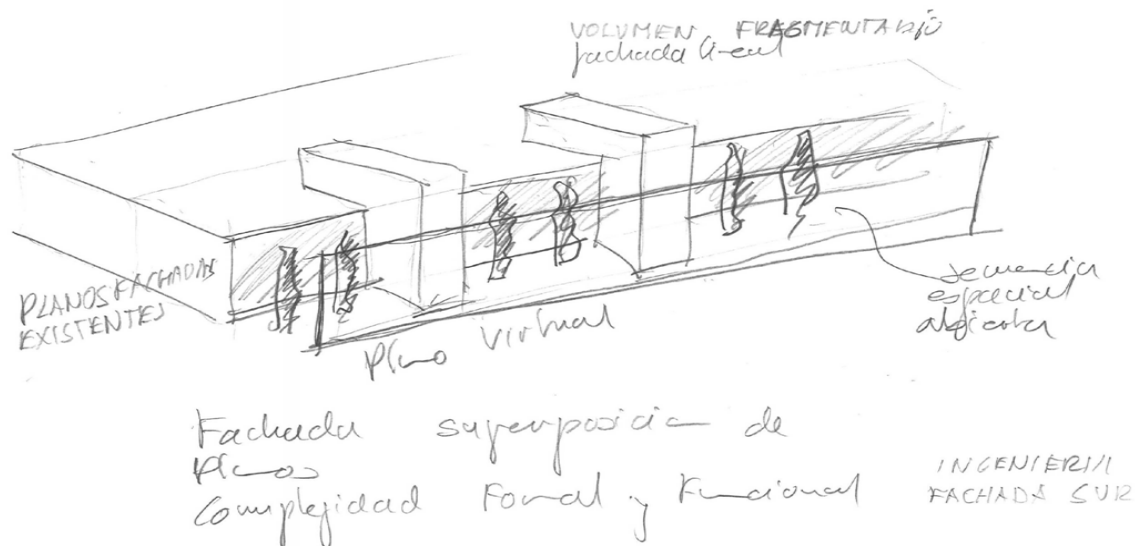 VOLUMEN FRAGMENTADO
fachada lineal
PLANOS FACHADAS
EXISTENTES
Plano virtual
secuencia
espacial
abierta
Fachada superposicion de
Planos
Complejidad Formal y Funcional
INGENIERIA
FACHADA SUR